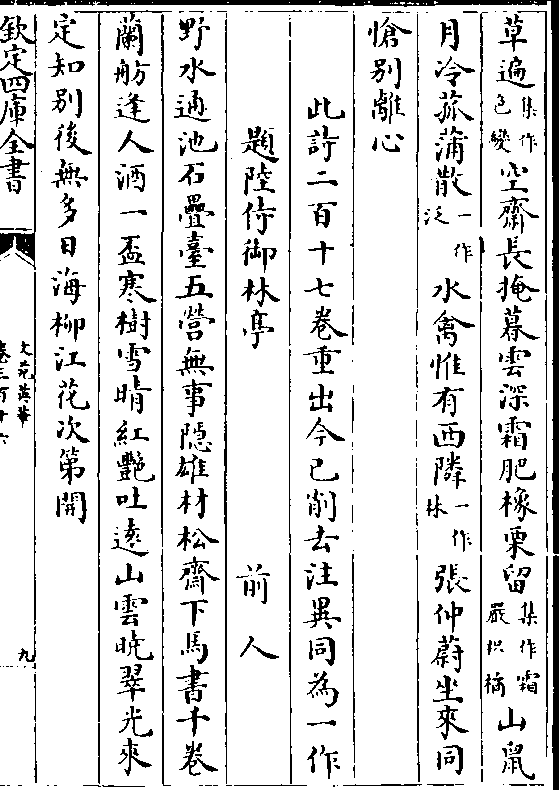 草遍集作色變空齋長掩暮雲深霜肥橡栗留集作霜嚴拱橘山鼠
月冷菰蒲散一作泛水禽惟有西隣一作林張仲蔚坐來同
愴别離心
此詩二百十七卷重出今已削去注異同為一作
題陸侍御林亭 前人
野水通池石疊臺五營無事隠雄材松齋下馬書千卷
蘭舫逢人酒一盃寒樹雪晴紅艷吐遠山雲曉翠光來
定知别後無多日海柳江花次第開
欽定四庫全書 文苑英華 卷三百十六 九